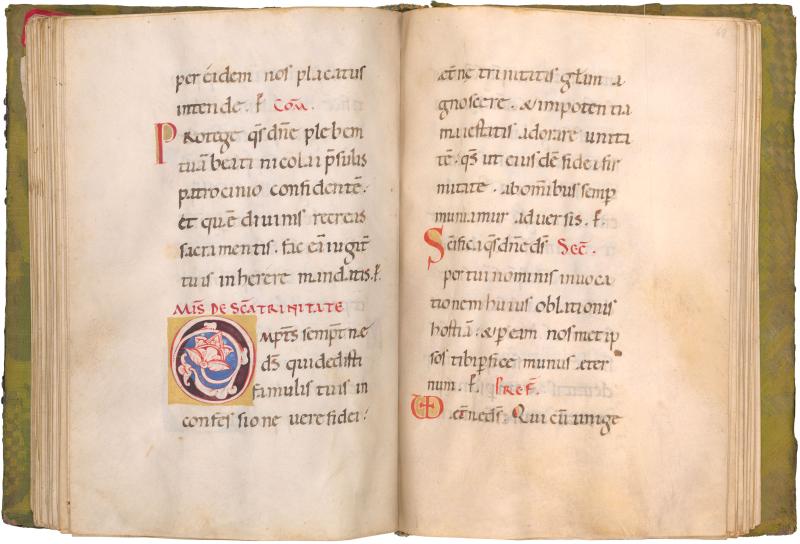 per eidem nos placatus
intende. P̄ Com̄.
Protege qs̄ dn̄e plebem
tuā beati nicolai p̄sulis
patrocinio confidentē.
et quē divinis recreas
sacramentis. fac eā iugit̄
tuis inherere mandatis. P̄.
MIS̄ DE SC̄A TRINITATE
OMPT̄S sempit̄ne
ds̄ qui dedisti
famulis tuis in
confessione vere fidei.
ęt̄nę trinitatis gl̄am a
gnoscere. & in potentia
maiestatis adorare unita
tē. qs̄ ut eiusdē fidei fir
mitate. ab om̄ibus semp̄
muniamur adversis. P̄.
Sc̄ifica qs̄ dn̄e ds̄ Sec̄.
per tui nominis invoca
tionem huius oblationis
hostiā. & p̄ eam nosmetip
sos tibi p̄fice munus ęter
num. P̄. Pref̄.
VD ęt̄ne ds̄. Qui cū unige